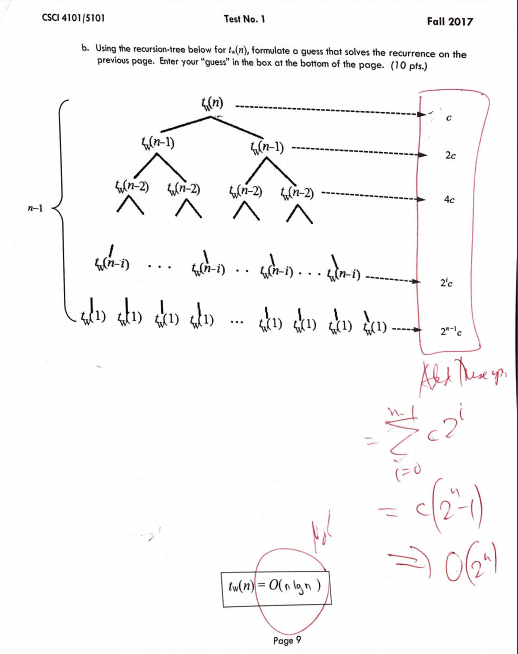 CSCI 4101/5101 Test No. 1 Fall 2017
b. Using the recursion-tree below for tw(n), formulate a guess that solves the recurrence on the
previous page. Enter your "guess" in the box at the bottom of the page. (10 pts.)
tw(n) c
tw(n-1) tw(n-1) 2c
tw(n-2) tw(n-2) tw(n-2) tw(n-2) 4c
n-1
tw(n-i) . . . tw(n-i) . . tw(n-i) . . . tw(n-i) 2^i c
tw(1) tw(1) tw(1) tw(1) ... tw(1) tw(1) tw(1) tw(1) 2^{n-1} c
Add These up.
= \sum_{i=0}^{n-1} c2^i
= c(2^n-1)
⇒ O(2^n)
tw(n) = O(n lg n)
Page 9